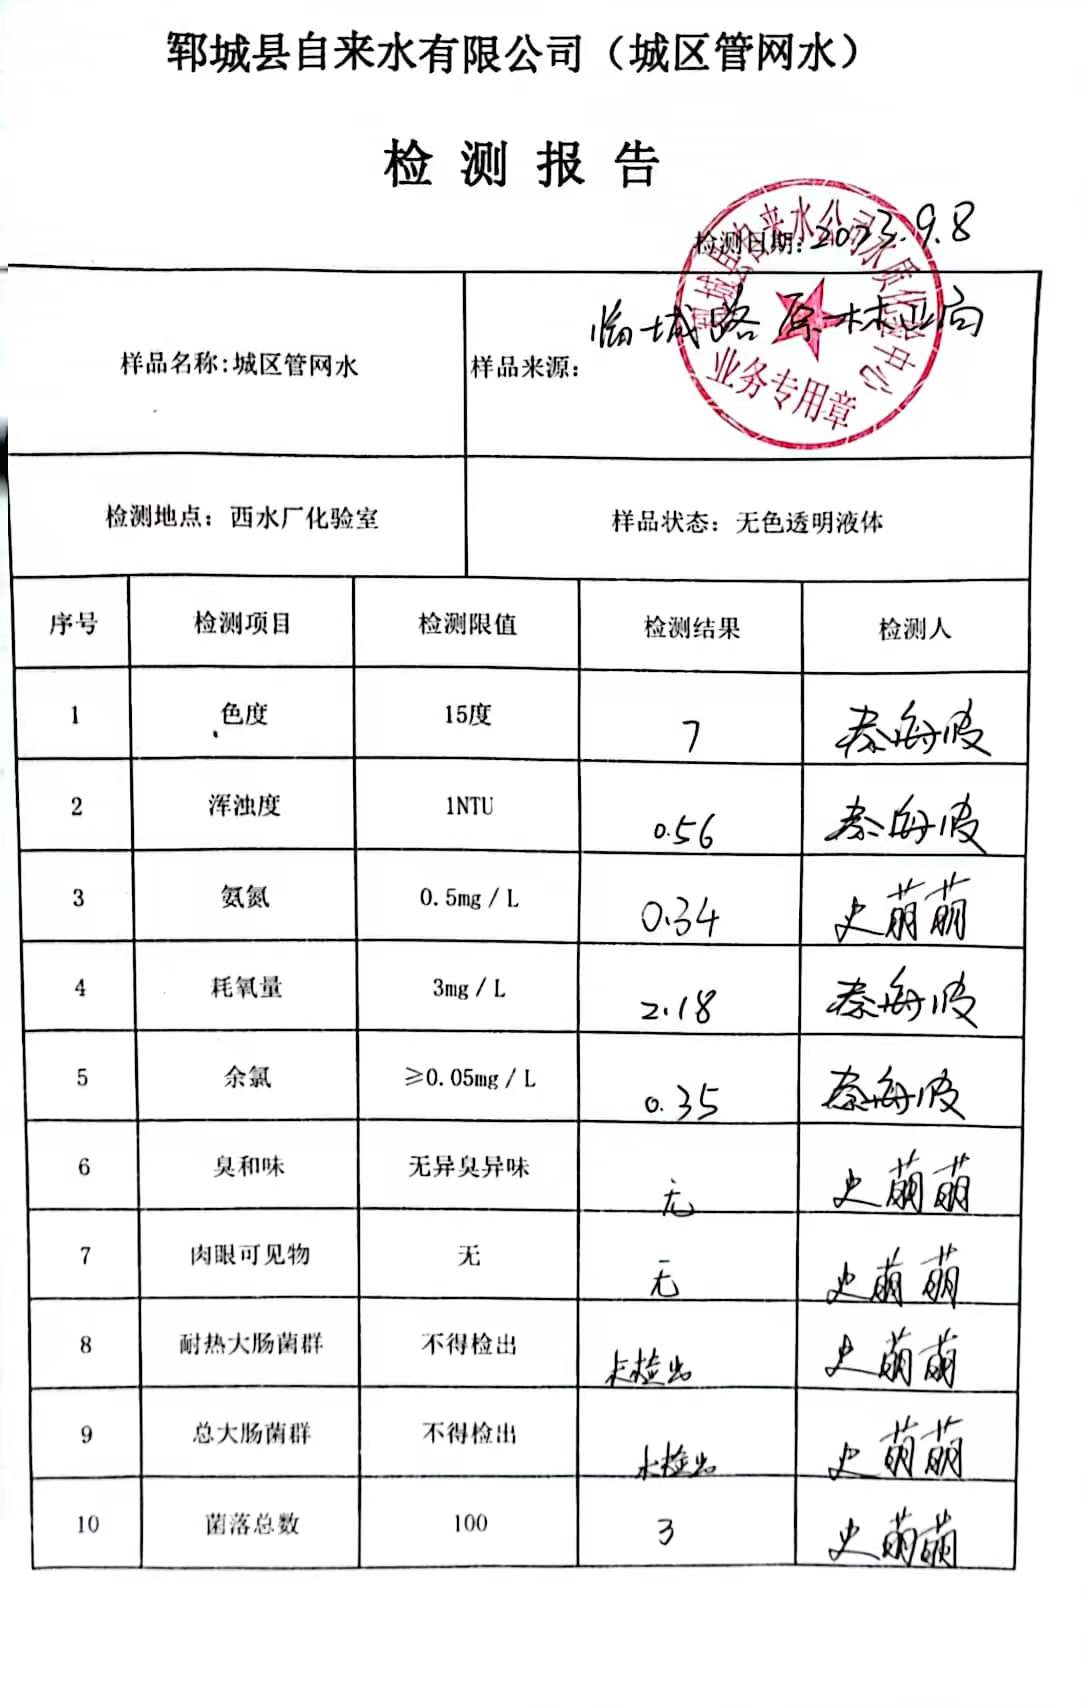 郓城县自来水有限公司（城区管网水）
检测报告
检测日期：2023.9.8
郓城县自来水公司水质化验中心
业务专用章
样品名称:城区管网水 样品来源： 临城路原林业局
检测地点：西水厂化验室 样品状态：无色透明液体
序号 检测项目 检测限值 检测结果 检测人
1 色度 15度 7 秦海波
2 浑浊度 1NTU 0.56 秦海波
3 氨氮 0.5mg／L 0.34 史萌萌
4 耗氧量 3mg／L 2.18 秦海波
5 余氯 ≥0.05mg／L 0.35 秦海波
6 臭和味 无异臭异味 无 史萌萌
7 肉眼可见物 无 无 史萌萌
8 耐热大肠菌群 不得检出 未检出 史萌萌
9 总大肠菌群 不得检出 未检出 史萌萌
10 菌落总数 100 3 史萌萌